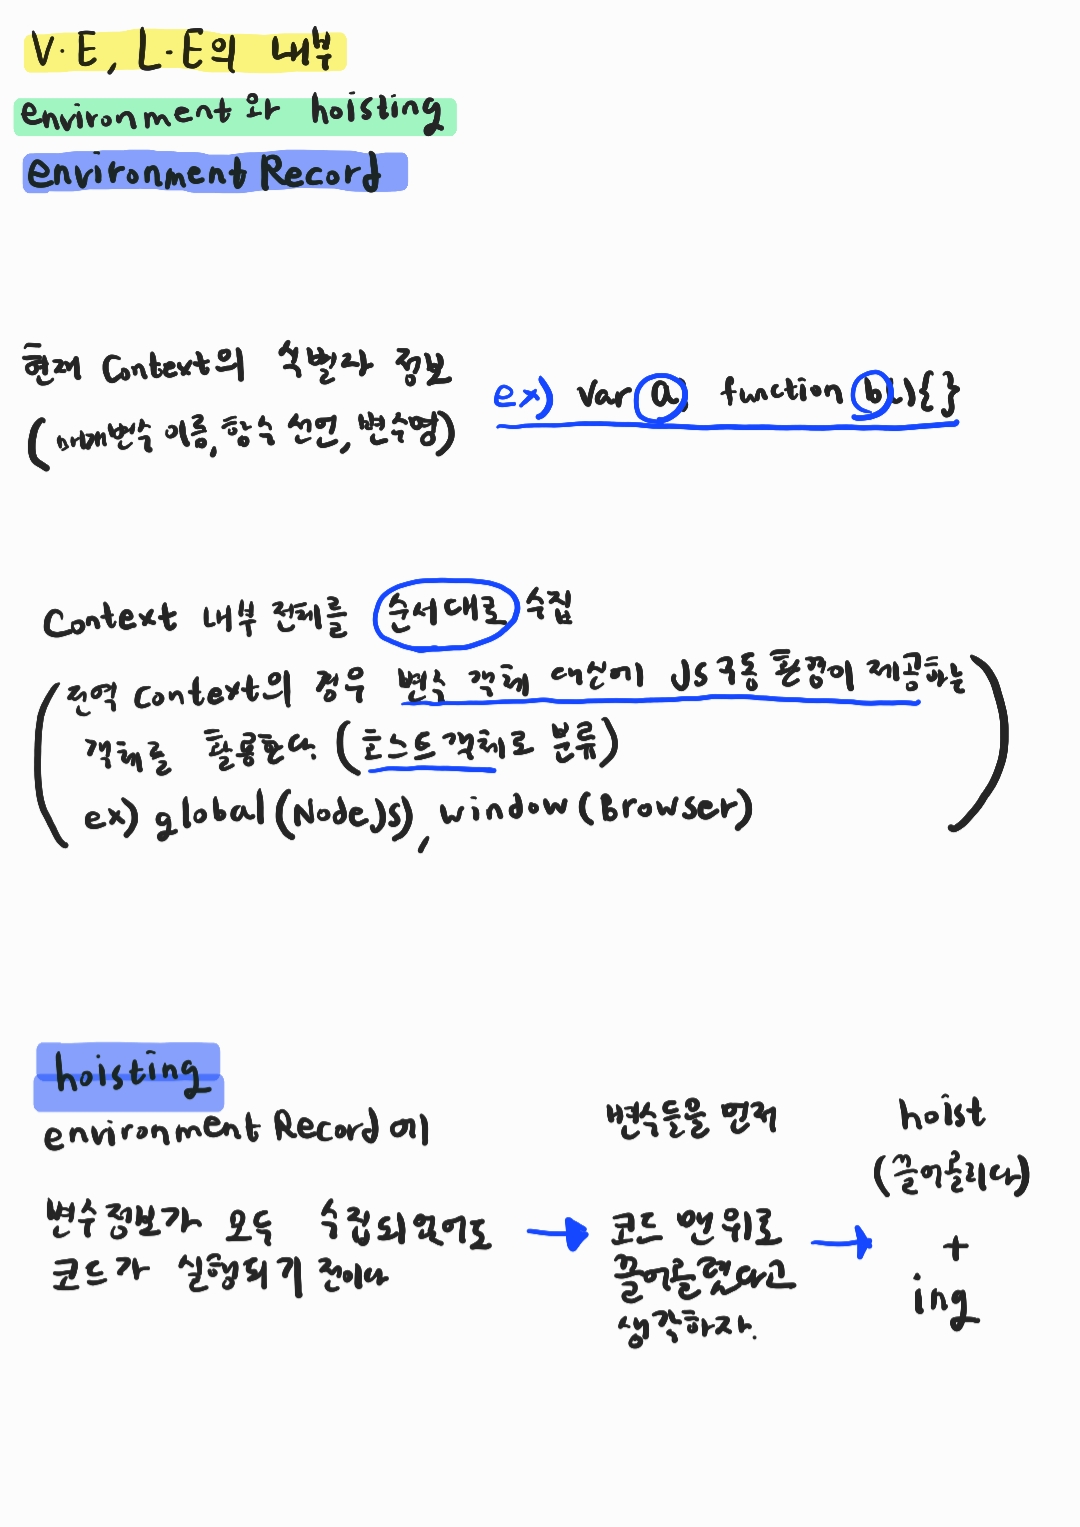 V·E, L·E의 내부
environment와 hoisting
environment Record
현재 Context의 식별자 정보
(매개변수 이름, 함수 선언, 변수명)
ex) var a, function b(){}
Context 내부 전체를 순서대로 수집
(전역 Context의 경우 변수 객체 대신에 JS 구동 환경이 제공하는
객체를 활용한다. (호스트 객체로 분류)
ex) global(NodeJS), window(Browser))
hoisting
environment Record에
변수정보가 모두 수집되었어도
코드가 실행되기 전이다
→
변수들을 먼저
코드 맨 위로
끌어올렸다고
생각하자.
→
hoist
(끌어올리다)
+
ing